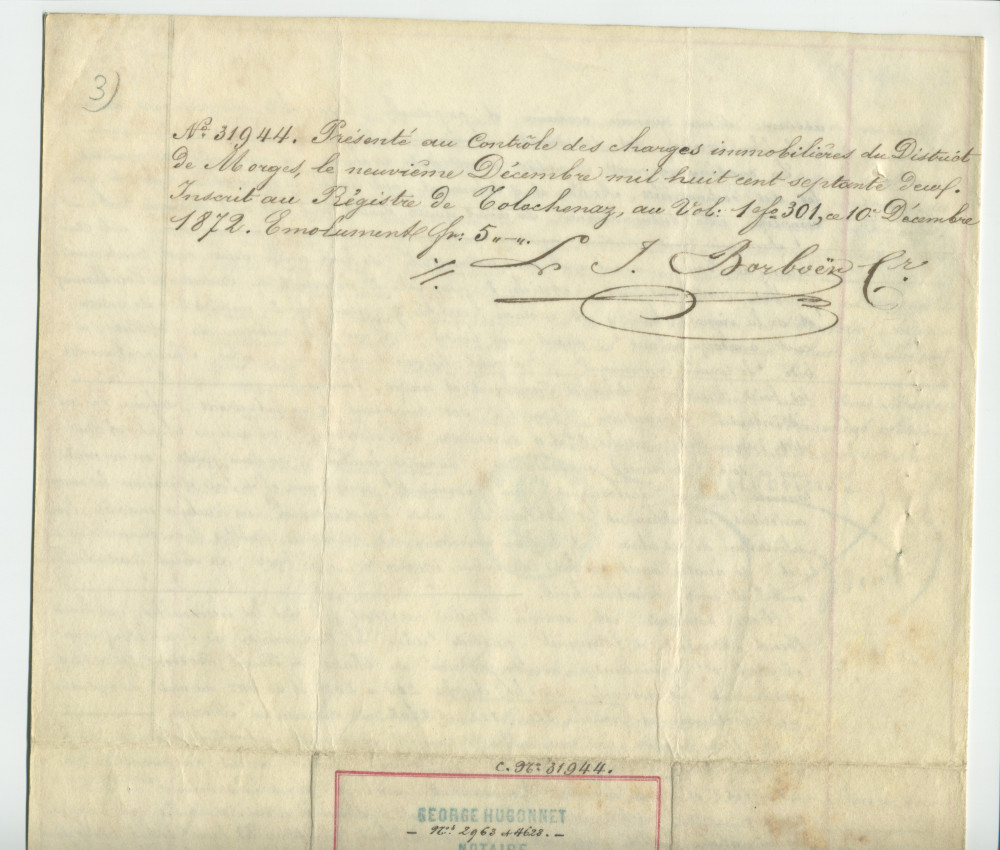 3)
No. 31944. Présenté au Contrôle des charges immobilières du District
de Morges, le neuvième Décembre mil huit cent septante deux.
Inscrit au Régistre de Tolochenaz, au Vol: 1 fo 301, ce 10. Décembre
1872. Emolument fr: 5 „ — „.
J. Borboën Cr.
C. No. 31944.
GEORGE HUGONNET
— Nos. 2963 & 4628. —
NOTAIRE